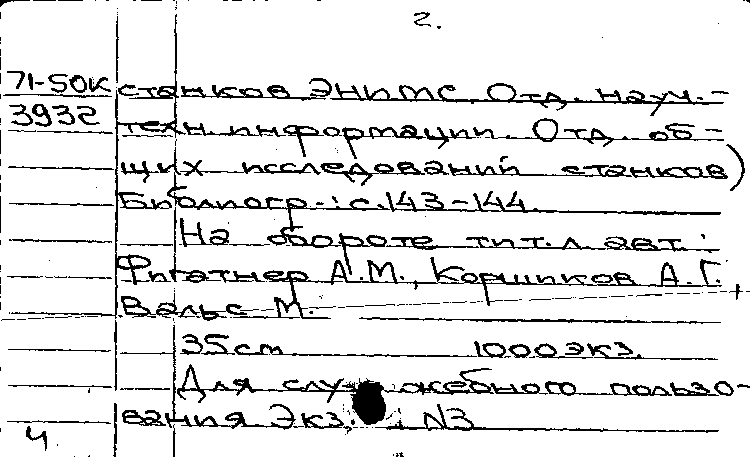 2.
71-50К станков ЭНИМС. Отд. науч.-
3932 техн. информации. Отд. об-
щих исследований станков)
Библиогр.: с.143-144.
На обороте тит. л. авт.:
Фигатнер А.М., Коршиков А.Г.,
Вальс М.
35 см 1000 экз.
Для служебного пользо-
вания Экз. N3
4